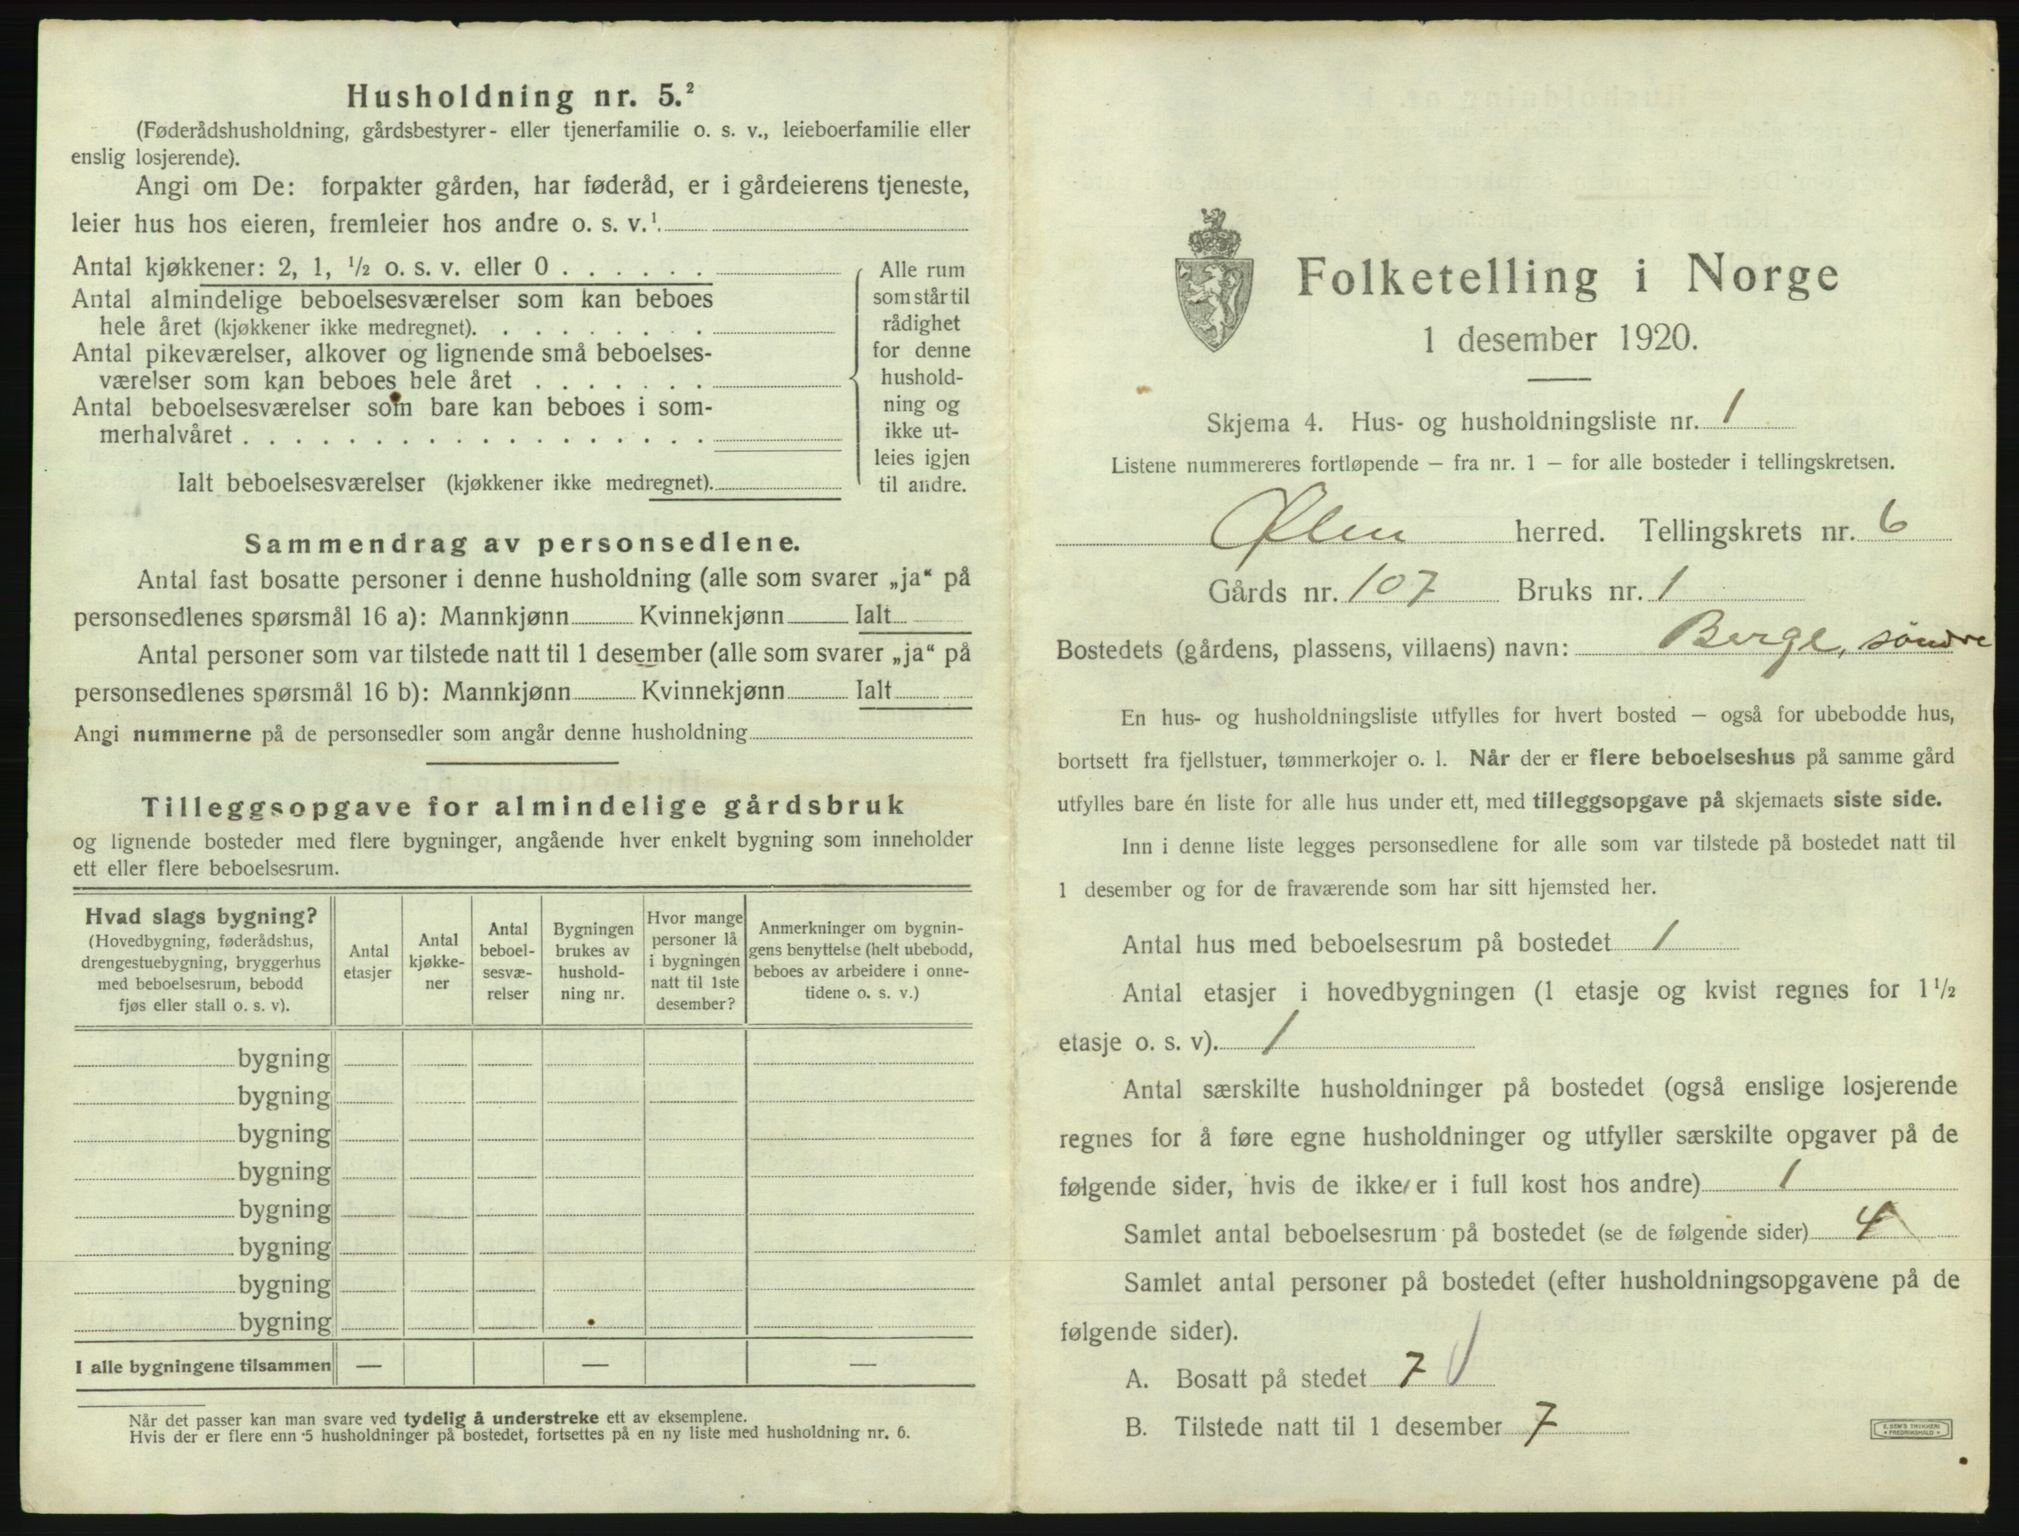 Husholdning nr. 5.²
(Føderådshusholdning, gårdsbestyrer- eller tjenerfamilie o. s. v., leieboerfamilie eller
enslig losjerende).
Angi om De: forpakter gården, har føderåd, er i gårdeierens tjeneste,
leier hus hos eieren, fremleier hos andre o. s. v.¹
Antal kjøkkener: 2, 1, ½ o. s. v. eller 0 . . . . . .
Antal almindelige beboelsesværelser som kan beboes
hele året (kjøkkener ikke medregnet). . . . . . . . .
Antal pikeværelser, alkover og lignende små beboelses-
værelser som kan beboes hele året . . . . . . .
Antal beboelsesværelser som bare kan beboes i som-
merhalvåret . . . . . . . . . . . . . . . . . .
Ialt beboelsesværelser (kjøkkener ikke medregnet).
Alle rum
som står til
rådighet
for denne
hushold-
ning og
ikke ut-
leies igjen
til andre.
Sammendrag av personsedlene.
Antal fast bosatte personer i denne husholdning (alle som svarer „ja“ på
personsedlenes spørsmål 16 a): Mannkjønn Kvinnekjønn Ialt
Antal personer som var tilstede natt til 1 desember (alle som svarer „ja“ på
personsedlenes spørsmål 16 b): Mannkjønn Kvinnekjønn Ialt
Angi nummerne på de personsedler som angår denne husholdning
Tilleggsopgave for almindelige gårdsbruk
og lignende bosteder med flere bygninger, angående hver enkelt bygning som inneholder
ett eller flere beboelsesrum.
Hvad slags bygning?
(Hovedbygning, føderådshus,
drengestuebygning, bryggerhus
med beboelsesrum, bebodd
fjøs eller stall o. s. v).
Antal
etasjer
Antal
kjøkke-
ner
Antal
beboel-
sesvæ-
relser
Bygningen
brukes av
hushold-
ning nr.
Hvor mange
personer lå
i bygningen
natt til 1ste
desember?
Anmerkninger om bygnin-
gens benyttelse (helt ubebodd,
beboes av arbeidere i onne-
tidene o. s. v.)
bygning
bygning
bygning
bygning
bygning
bygning
bygning
bygning
I alle bygningene tilsammen — — —
Når det passer kan man svare ved tydelig å understreke ett av eksemplene.
Hvis der er flere enn 5 husholdninger på bostedet, fortsettes på en ny liste med husholdning nr. 6.
Folketelling i Norge
1 desember 1920.
Skjema 4. Hus- og husholdningsliste nr. 1
Listene nummereres fortløpende — fra nr. 1 — for alle bosteder i tellingskretsen.
Ølen herred. Tellingskrets nr. 6
Gårds nr. 107 Bruks nr. 1
Bostedets (gårdens, plassens, villaens) navn: Berge, søndre
En hus- og husholdningsliste utfylles for hvert bosted — også for ubebodde hus,
bortsett fra fjellstuer, tømmerkojer o. l. Når der er flere beboelseshus på samme gård
utfylles bare én liste for alle hus under ett, med tilleggsopgave på skjemaets siste side.
Inn i denne liste legges personsedlene for alle som var tilstede på bostedet natt til
1 desember og for de fraværende som har sitt hjemsted her.
Antal hus med beboelsesrum på bostedet 1
Antal etasjer i hovedbygningen (1 etasje og kvist regnes for 1½
etasje o. s. v). 1
Antal særskilte husholdninger på bostedet (også enslige losjerende
regnes for å føre egne husholdninger og utfyller særskilte opgaver på de
følgende sider, hvis de ikke er i full kost hos andre) 1
Samlet antal beboelsesrum på bostedet (se de følgende sider) 4
Samlet antal personer på bostedet (efter husholdningsopgavene på de
følgende sider).
A. Bosatt på stedet 7
B. Tilstede natt til 1 desember 7
E. SEM'S TRYKKERI
FREDRIKSHALD